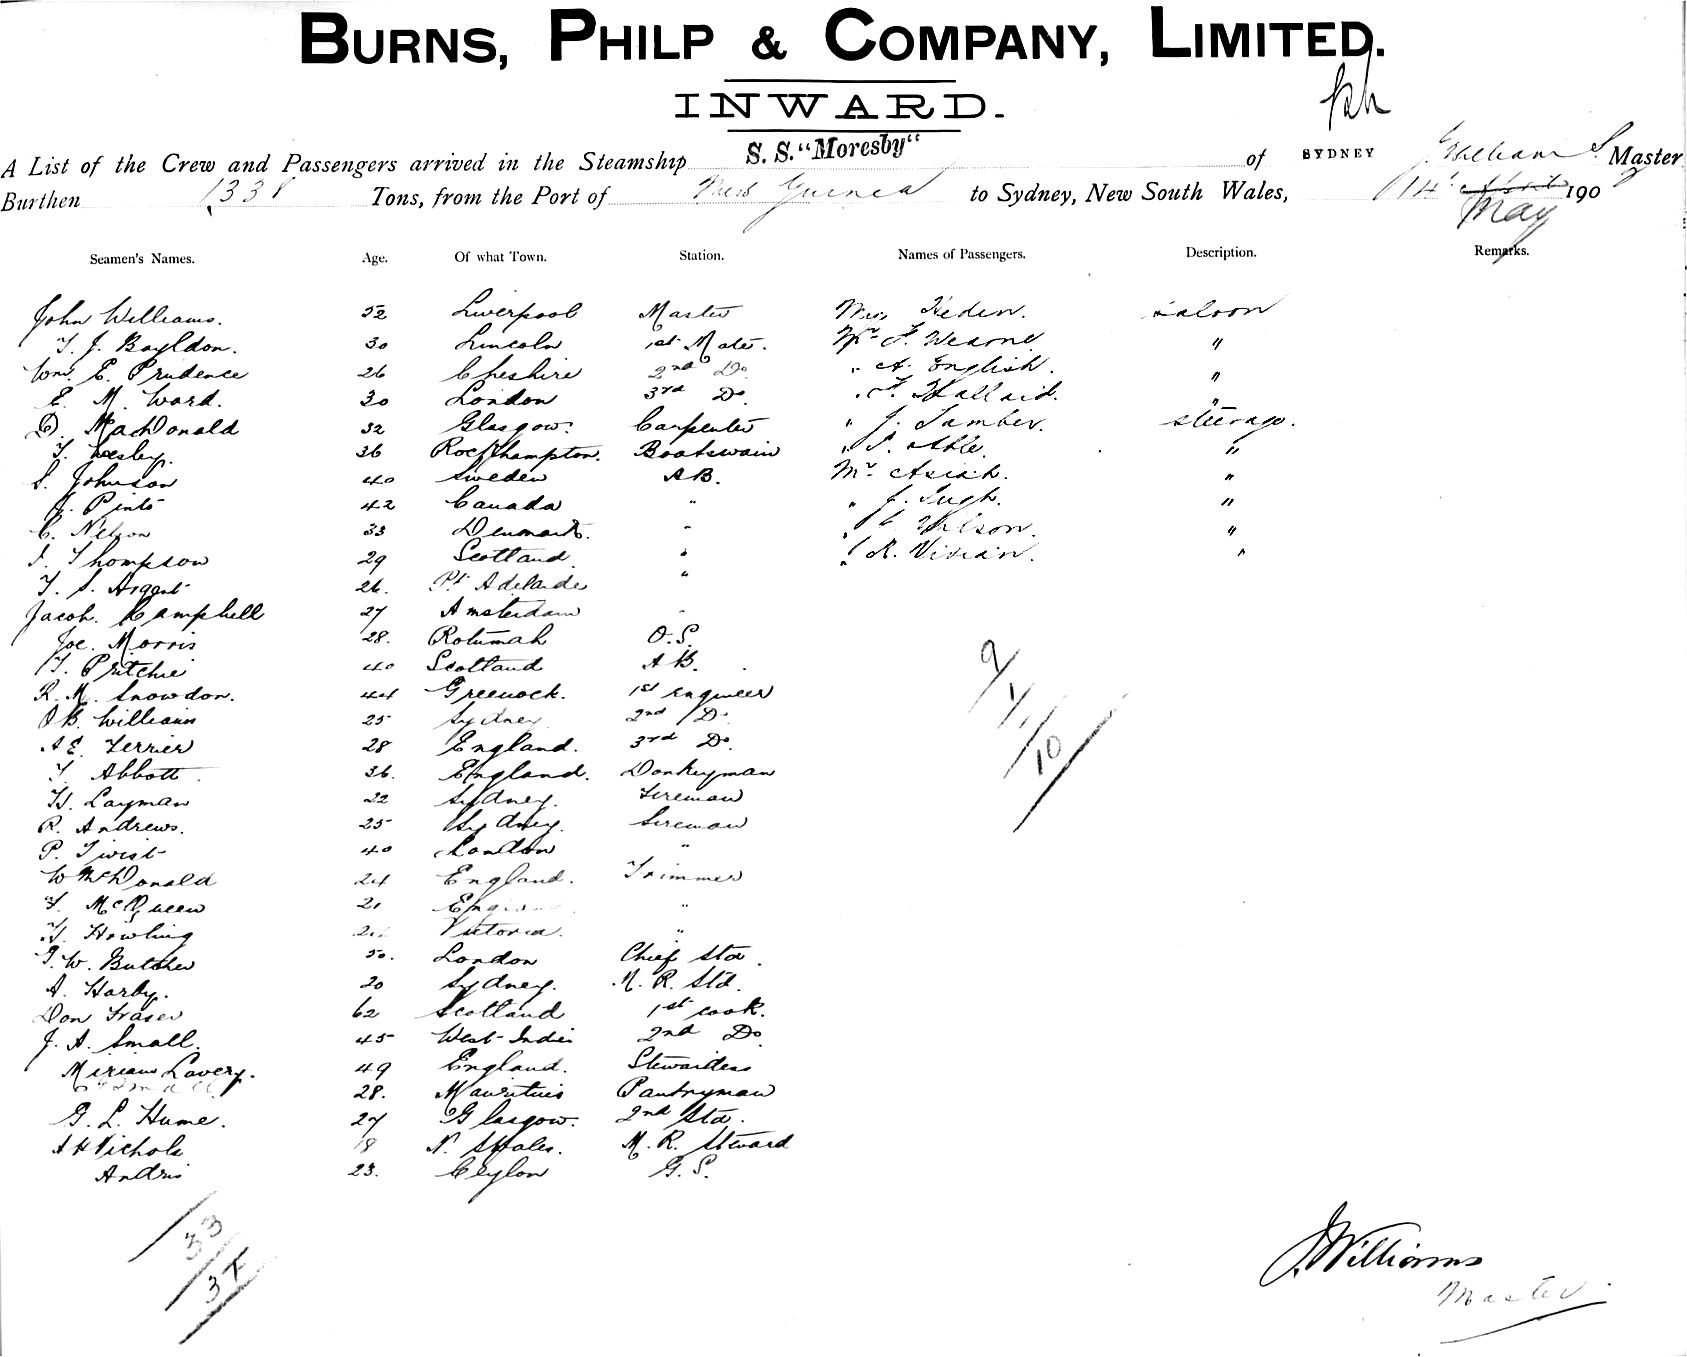 BURNS, PHILP & COMPANY, LIMITED.
INWARD.
A List of the Crew and Passengers arrived in the Steamship S. S. "Moresby" of SYDNEY J. Williams Master
Burthen Tons, from the Port of New Guinea to Sydney, New South Wales, 14th April May 190
Seamen's Names. Age. Of what Town. Station. Names of Passengers. Description. Remarks.
John Williams. 52 Liverpool Master Mrs Heden. Saloon
T. J. Bayldon. 30 Lincoln 1st Mate. Mr F. Wearne "
Wm. E. Prudence 26 Cheshire 2nd Do " A. English. "
E. M. Ward. 30 London 3rd Do. " F. Hallaid. "
D. MacDonald 32 Glasgow. Carpenter " J. Tamber. Steerage.
T. Lesley. 36 Rockhampton. Boatswain " P. Able. "
S. Johnson 40 Sweden AB. Mr. Asiah. "
J. Pinto 42 Canada " " J. Pugh. "
C. Nelson 33 Denmark. " " C Wilson. "
J. Thompson 29 Scotland " " R. Vivian. "
T. S. Argent 26. Pt Adelaide "
Jacob. Campbell 27 Amsterdam "
Joe. Morris 28. Rotumah O.S.
T. Pritchie 40 Scotland AB.
R. M. Snowdon. 44 Greenock. 1st Engineer
J B. Williams 25 Sydney 2nd Do
A E. Ferrier 28 England. 3rd Do.
T. Abbott 36. England. Donkeyman
H. Layman 22 Sydney. Fireman
R. Andrews. 25 Sydney. Fireman
P. Twist 40 London "
W McDonald 24 England. Trimmer
T. McQueen 21 England "
H. Howling Victoria. "
T. W. Butcher 50. London Chief Std.
A. Harby. 20 Sydney. M. R. Std.
Don Fraser 62 Scotland 1st cook.
J. A. Small. 45 West Indies 2nd Do
Miriam Lavery. 49 England. Stewardess
28. Mauritius Pantryman
G. L. Hume. 27 Glasgow. 2nd Std.
A H Nichols 18 N. S Wales. M. R. Steward
Andris 23. Ceylon G. S.
9
1
10
33
34
J. Williams
Master